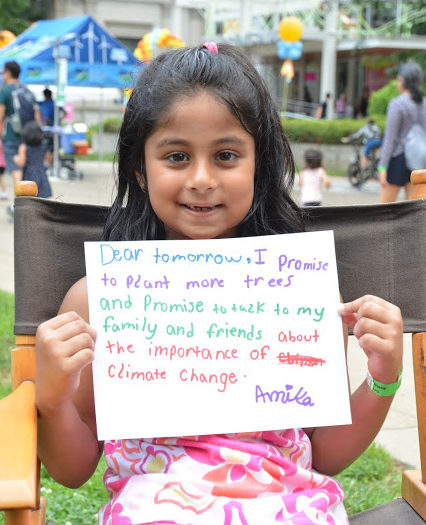 Dear tomorrow, I promise
to plant more trees
and Promise to talk to my
family and friends about
the importance of
Climate Change.
Amika